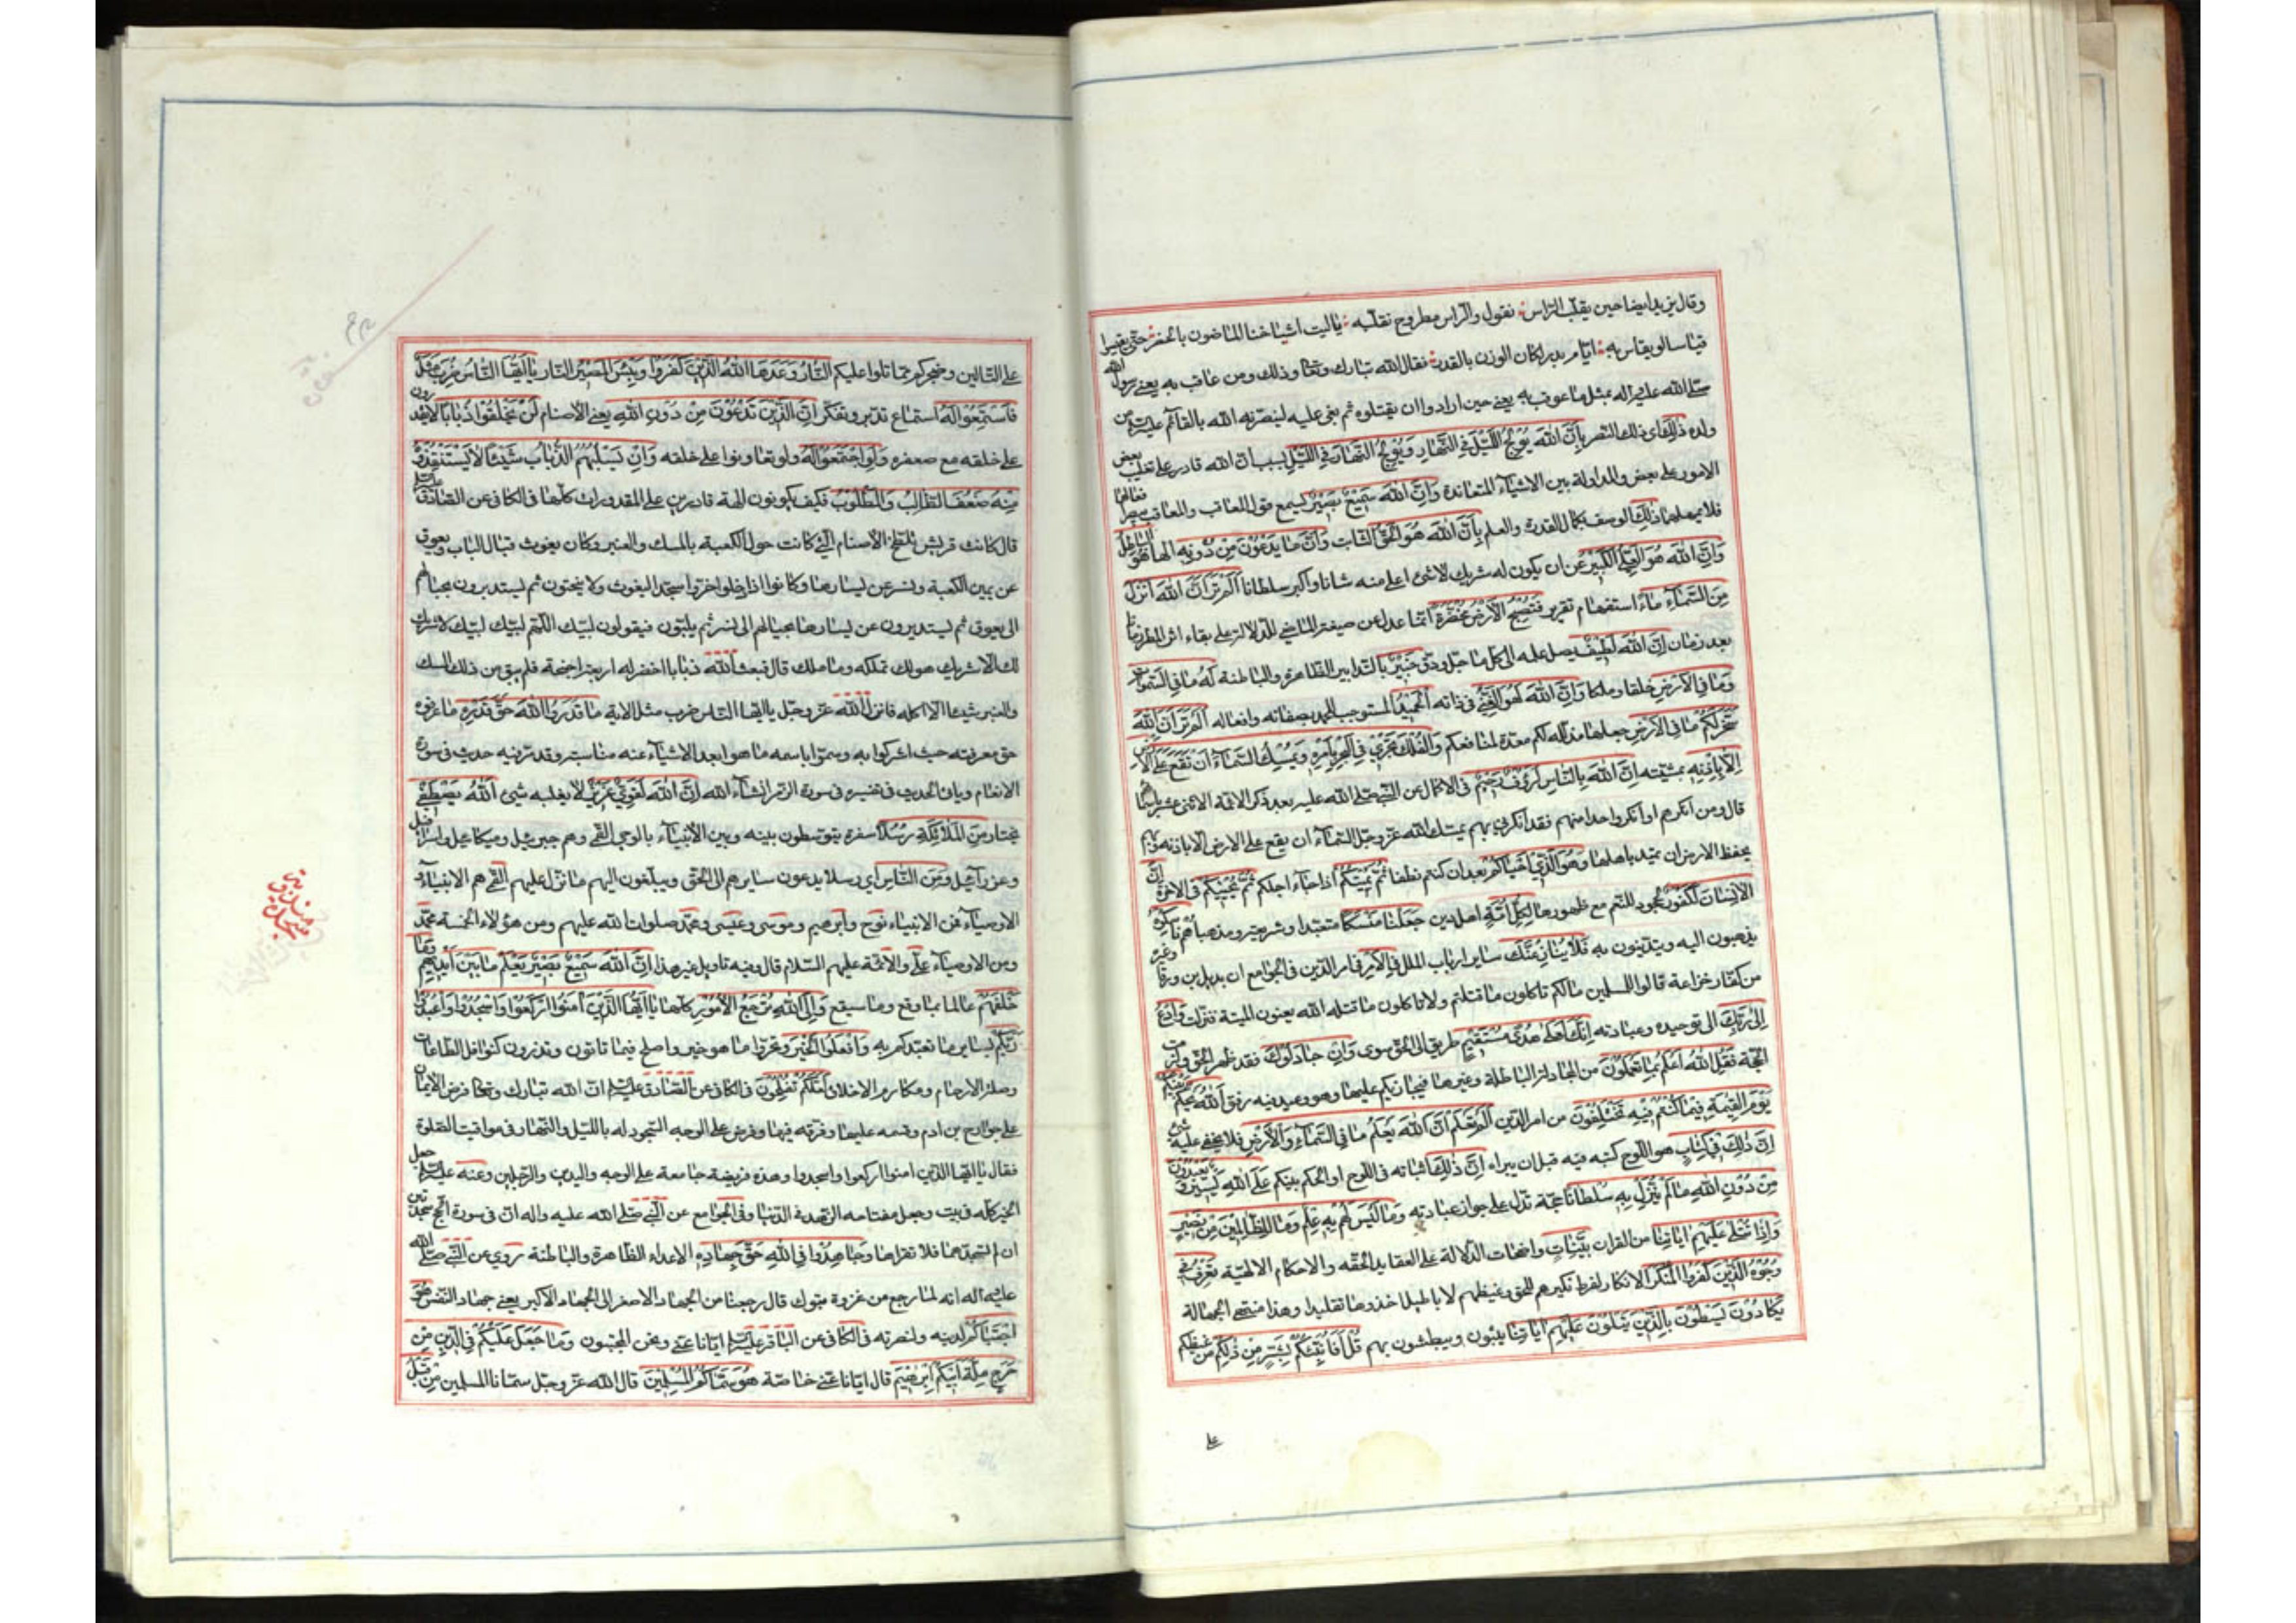 وقال يزيد ايضا حين يقلب الراس نقول والراس مطروح نقلبه يا ليت اشياخنا الماضون بالحضر حتى يقيسوا
قياسا لو يقاس به ايام بدر لكان الوزن بالقدر فقال الله تبارك وتعا وذلك ومن عاقب به يعنى رسول الله
صلى الله عليه واله بمثل ما عوقب به يعنى حين ارادوا ان يقتلوه ثم بغى عليه لينصرنه الله بالقائم عليه السلام من
ولده ذلك اى ذلك النصر بِأَنَّ اللهَ يُولِجُ اللَّيْلَ فِي النَّهَارِ وَيُولِجُ النَّهَارَ فِي اللَّيْلِ بسبب ان الله قادر على تغليب بعض
الامور على بعض والمداولة بين الاشياء المتعاندة وَأَنَّ اللهَ سَمِيعٌ بَصِيرٌ يسمع قول المعاقب والمعاقب يبصر افعالهما
فلا يهملهما ذٰلِكَ الوصف بكمال القدرة والعلم بِأَنَّ اللهَ هُوَ الْحَقُّ الثابت وَأَنَّ مَا يَدْعُونَ مِنْ دُونِهِ الها هُوَ الْبَاطِلُ
وَأَنَّ اللهَ هُوَ الْعَلِيُّ الْكَبِيرُ عن ان يكون له شريك لا شئ اعلى منه شانا واكبر سلطانا أَلَمْ تَرَ أَنَّ اللهَ أَنْزَلَ
مِنَ السَّمَاءِ مَاءً استفهام تقرير فَتُصْبِحُ الْأَرْضُ مُخْضَرَّةً انما عدل عن صيغة الماضى للدلالة على بقاء اثر المطر زمانا
بعد زمان إِنَّ اللهَ لَطِيفٌ يصل علمه الى كل ما جل ودق خَبِيرٌ بالتدابير الظاهرة والباطنة لَهُ مَا فِي السَّمٰوَاتِ
وَمَا فِي الْأَرْضِ خلقا وملكا وَإِنَّ اللهَ لَهُوَ الْغَنِيُّ فى ذاته الْحَمِيدُ المستوجب للحمد بصفاته وافعاله أَلَمْ تَرَ أَنَّ اللهَ
سَخَّرَ لَكُمْ مَا فِي الْأَرْضِ جعلها مذللة لكم معدة لمنافعكم وَالْفُلْكَ تَجْرِي فِي الْبَحْرِ بِأَمْرِهِ وَيُمْسِكُ السَّمَاءَ أَنْ تَقَعَ عَلَى الْأَرْضِ
إِلَّا بِإِذْنِهِ بمشيته إِنَّ اللهَ بِالنَّاسِ لَرَؤُفٌ رَحِيمٌ فى الاكمال عن النبى صلى الله عليه بعد ذكر الائمة الاثنى عشر باسمائهم
قال ومن انكرهم او انكر واحدا منهم فقد انكرنى بهم يمسك الله عز وجل السماء ان يقع على الارض الا باذنه وبهم
يحفظ الارض ان تميد باهلها وَهُوَ الَّذِي أَحْيَاكُمْ بعد ان كنتم نطفا ثُمَّ يُمِيتُكُمْ اذا جاء اجلكم ثُمَّ يُحْيِيكُمْ فى الاخرة إِنَّ
الْإِنْسَانَ لَكَفُورٌ لجحود للنعم مع ظهورها لِكُلِّ أُمَّةٍ اهل دين جَعَلْنَا مَنْسَكًا متعبدا وشريعة ومذهبا هُمْ نَاسِكُوهُ
يذهبون اليه ويتدينون به فَلَا يُنَازِعُنَّكَ ساير ارباب الملل فِي الْأَمْرِ فى امر الدين فى الجوامع ان بديل بن ورقا وغيره
من كفار خزاعة قالوا للمسلمين مالكم تاكلون ما قتلتم ولا تاكلون ما قتله الله يعنون الميتة فنزلت وَادْعُ
إِلَى رَبِّكَ الى توحيده وعبادته إِنَّكَ لَعَلَى هُدًى مُسْتَقِيمٍ طريق الى الحق سوى وَإِنْ جَادَلُوكَ فقد ظهر الحق ولزمت
الحجة فَقُلِ اللهُ أَعْلَمُ بِمَا تَعْمَلُونَ من المجادلة الباطلة وغيرها فيجازيكم عليها وهو وعيد فيه رفق اَللهُ يَحْكُمُ بَيْنَكُمْ
يَوْمَ الْقِيٰمَةِ فِيمَا كُنْتُمْ فِيهِ تَخْتَلِفُونَ من امر الدين أَلَمْ تَعْلَمْ أَنَّ اللهَ يَعْلَمُ مَا فِي السَّمَاءِ وَالْأَرْضِ فلا يخفى عليه شئ
إِنَّ ذٰلِكَ فِي كِتَابٍ هو اللوح كتبه فيه قبل ان يبراه إِنَّ ذٰلِكَ اثباته فى اللوح او الحكم بينكم عَلَى اللهِ يَسِيرٌ وَيَعْبُدُونَ
مِنْ دُونِ اللهِ مَا لَمْ يُنَزِّلْ بِهِ سُلْطَانًا حجة تدل على جواز عبادته وَمَا لَيْسَ لَهُمْ بِهِ عِلْمٌ وَمَا لِلظَّالِمِينَ مِنْ نَصِيرٍ
وَإِذَا تُتْلَى عَلَيْهِمْ اٰيَاتُنَا من القران بَيِّنَاتٍ واضحات الدلالة على العقايد الحقه والاحكام الالهية تَعْرِفُ فِي
وُجُوهِ الَّذِينَ كَفَرُوا الْمُنْكَرَ الانكار لفرط نكيرهم للحق وغيظهم لاباطيل اخذوها تقليدا وهذا منتهى الجهالة
يَكَادُونَ يَسْطُونَ بِالَّذِينَ يَتْلُونَ عَلَيْهِمْ اٰيَاتِنَا يثبون ويبطشون بهم قُلْ أَفَأُنَبِّئُكُمْ بِشَرٍّ مِنْ ذٰلِكُمْ من غيظكم
على
على التالين وضجركم بما تلوا عليكم النَّارُ وَعَدَهَا اللهُ الَّذِينَ كَفَرُوا وَبِئْسَ الْمَصِيرُ النار يَا أَيُّهَا النَّاسُ ضُرِبَ مَثَلٌ
فَاسْتَمِعُوا لَهُ استماع تدبر وتفكر إِنَّ الَّذِينَ تَدْعُونَ مِنْ دُونِ اللهِ يعنى الاصنام لَنْ يَخْلُقُوا ذُبَابًا لا يقدرون
على خلقه مع صغره وَلَوِ اجْتَمَعُوا لَهُ ولو تعاونوا على خلقه وَإِنْ يَسْلُبْهُمُ الذُّبَابُ شَيْئًا لَا يَسْتَنْقِذُوهُ
مِنْهُ ضَعُفَ الطَّالِبُ وَالْمَطْلُوبُ فكيف يكونون الهة قادرين على المقدورات كلها فى الكافى عن الصادق عليه السلام
قال كانت قريش تلطخ الاصنام التى كانت حول الكعبة بالمسك والعنبر وكان يغوث قبال الباب ويعوق
عن يمين الكعبة ونسر عن يسارها وكانوا اذا دخلوا خروا سجدا ليغوث ولا ينحنون ثم يستديرون بحيالهم
الى يعوق ثم يستديرون عن يسارها بحيالهم الى نسر ثم يلبون فيقولون لبيك اللهم لبيك لبيك لا شريك
لك الا شريك هو لك تملكه وما ملك قال فبعث الله ذبابا اخضر له اربعة اجنحة فلم يبق من ذلك المسك
والعنبر شيئا الا اكله فانزل الله عز وجل يا ايها الناس ضرب مثل الاية مَا قَدَرُوا اللهَ حَقَّ قَدْرِهِ ما عرفوه
حق معرفته حيث اشركوا به وسموا باسمه ما هو ابعد الاشياء عنه مناسبة وقد مر فيه حديث فى سورة
الانعام وياتى الحديث فى تفسيره فى سورة الزمر انشاء الله إِنَّ اللهَ لَقَوِيٌّ عَزِيزٌ لا يغلبه شئ اَللهُ يَصْطَفِي
يختار مِنَ الْمَلَائِكَةِ رُسُلًا سفرة يتوسطون بينه وبين الانبياء بالوحى القمى وهم جبرئيل وميكائيل واسرافيل
وعزرائيل وَمِنَ النَّاسِ اى رسلا يدعون سايرهم الى الحق ويبلغون اليهم ما نزل عليهم القمى هم الانبياء و
الاوصياء فمن الانبياء نوح وابرهيم وموسى وعيسى ومحمد صلوات الله عليهم ومن هؤلاء الخمسة محمد
ومن الاوصياء على والائمة عليهم السلام قال وفيه تاويل غير هذا إِنَّ اللهَ سَمِيعٌ بَصِيرٌ يَعْلَمُ مَا بَيْنَ أَيْدِيهِمْ وَمَا
خَلْفَهُمْ عالما بما وقع وما سيقع وَإِلَى اللهِ تُرْجَعُ الْأُمُورُ كلها يَا أَيُّهَا الَّذِينَ اٰمَنُوا ارْكَعُوا وَاسْجُدُوا وَاعْبُدُوا
رَبَّكُمْ بساير ما تعبدكم به وَافْعَلُوا الْخَيْرَ وتحروا ما هو خير واصلح فيما تاتون وتذرون كنوافل الطاعات
وصلة الارحام ومكارم الاخلاق لَعَلَّكُمْ تُفْلِحُونَ فى الكافى عن الصادق عليه السلام ان الله تبارك وتعا فرض الايمان
على جوارح بن ادم وقسمه عليها وفرقه فيها وفرض على الوجه السجود له بالليل والنهار فى مواقيت الصلوة
فقال يا ايها الذين امنوا اركعوا واسجدوا وهذه فريضة جامعة على الوجه واليدين والرجلين وعنه عليه السلام جعل
الخير كله فى بيت وجعل مفتاحه الزهد فى الدنيا وفى الجوامع عن النبى صلى الله عليه واله ان فى سورة الحج سجدتين
ان لم تسجدهما فلا تقراها وَجَاهِدُوا فِي اللهِ حَقَّ جِهَادِهِ الاعداء الظاهرة والباطنة روى عن النبى صلى الله
عليه واله انه لما رجع من غزوة تبوك قال رجعنا من الجهاد الاصغر الى الجهاد الاكبر يعنى جهاد النفس هُوَ
اجْتَبَاكُمْ لدينه ولنصرته فى الكافى عن الباقر عليه السلام ايانا عنى ونحن المجتبون وَمَا جَعَلَ عَلَيْكُمْ فِي الدِّينِ مِنْ
حَرَجٍ مِلَّةَ أَبِيكُمْ إِبْرٰهِيمَ قال ايانا عنى خاصة هُوَ سَمَّاكُمُ الْمُسْلِمِينَ قال الله عز وجل سمانا المسلمين مِنْ قَبْلُ